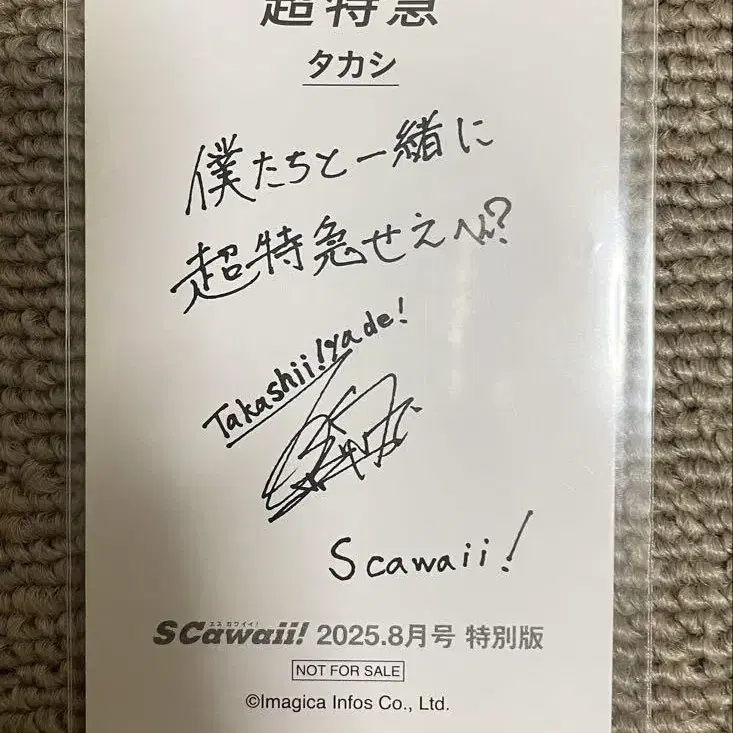 超特急
タカシ
僕たちと一緒に
超特急せえへん?
Takashii!yade!
Scawaii!
エス カワイイ!
SCawaii! 2025.8月号 特別版
NOT FOR SALE
©Imagica Infos Co., Ltd.